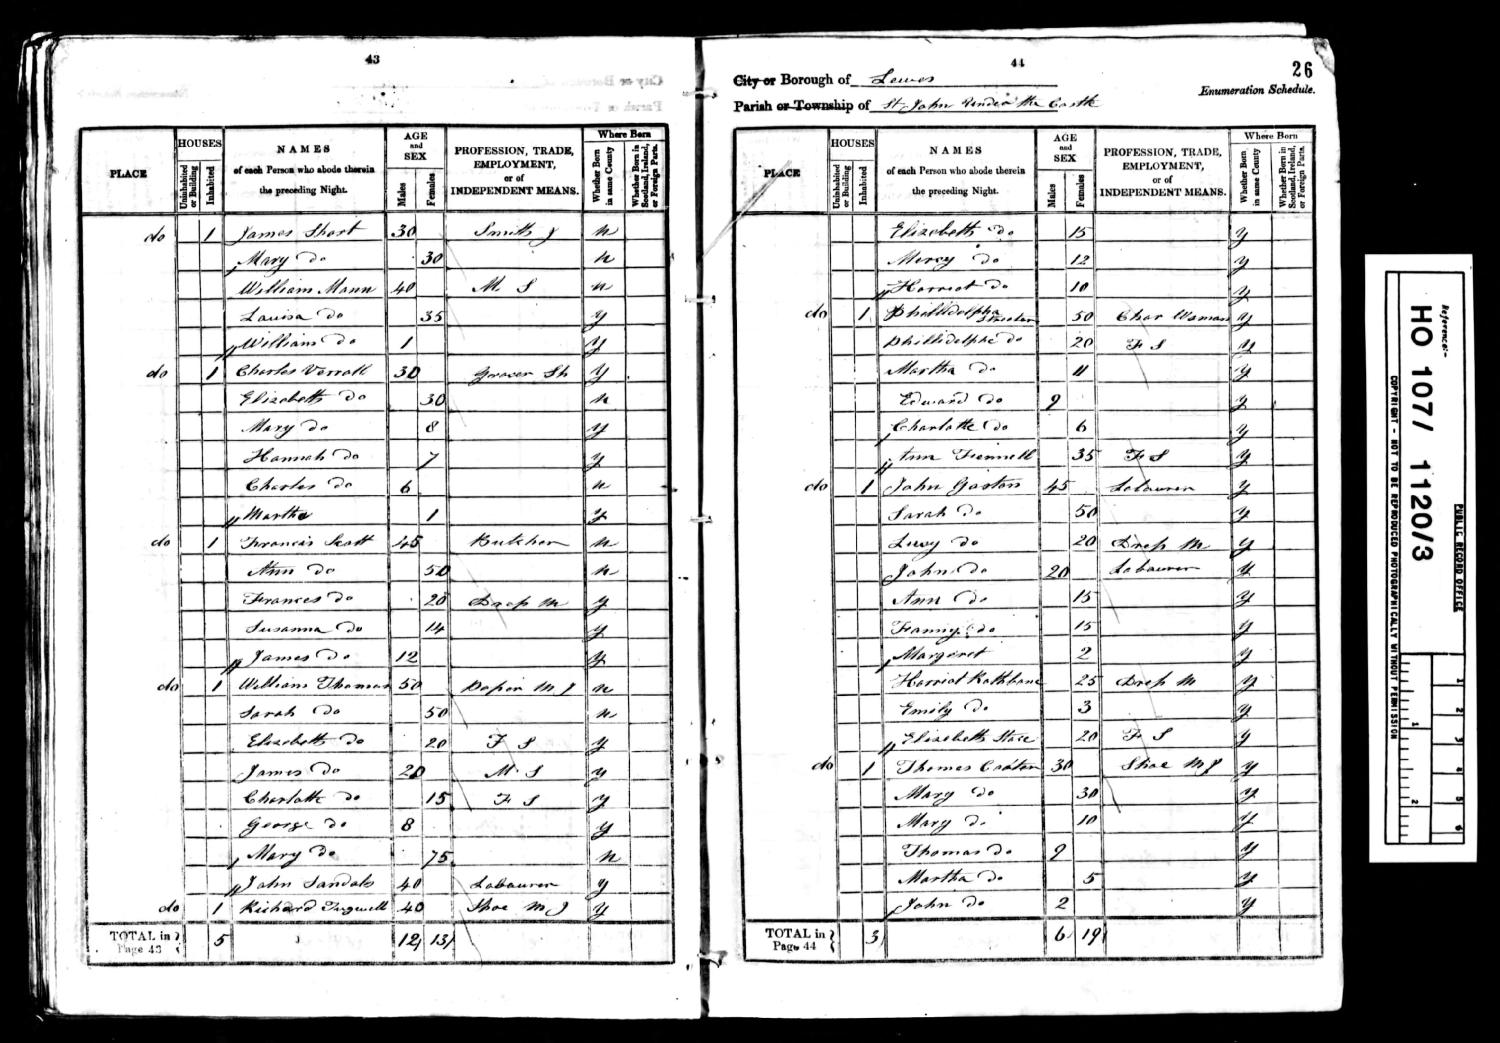 43
PLACE
HOUSES
Uninhabited or Building
Inhabited
NAMES
of each Person who abode therein
the preceding Night.
AGE
and
SEX
Males
Females
PROFESSION, TRADE,
EMPLOYMENT,
or of
INDEPENDENT MEANS.
Where Born
Whether Born in same County
Whether Born in Scotland, Ireland, or Foreign Parts.
do 1 James Short 30 Smith J n
Mary Do 30 n
William Mann 40 M S n
Louisa Do 35 y
William Do 1 y
do 1 Charles Verrall 30 Grocer Sh y
Elizabeth Do 30 n
Mary Do 8 y
Hannah Do 7 y
Charles Do 6 n
Martha 1 y
do 1 Francis Scott 45 Butcher n
Ann Do 50 n
Frances Do 20 Dress M y
Susanna Do 14 y
James Do 12 y
do 1 William Thomas 50 Paper M J n
Sarah Do 50 n
Elizabeth Do 20 F S y
James Do 20 M S y
Charlotte Do 15 F S y
George Do 8 y
Mary Do 75 n
John Sandals 40 Labourer y
do 1 Richard Tugwell 40 Shoe M J y
TOTAL in Page 43 5 12 13
44
26
City or Borough of Lewes
Enumeration Schedule.
Parish or Township of St John Under the Castle
PLACE
HOUSES
Uninhabited or Building
Inhabited
NAMES
of each Person who abode therein
the preceding Night.
AGE
and
SEX
Males
Females
PROFESSION, TRADE,
EMPLOYMENT,
or of
INDEPENDENT MEANS.
Where Born
Whether Born in same County
Whether Born in Scotland, Ireland, or Foreign Parts.
Elizabeth Do 15 y
Mercy Do 12 y
Harriot Do 10 y
do 1 Philidelpha 50 Char Woman y
Philidelpha Do 20 F S y
Martha Do 11 y
Edward Do 9 y
Charlotte Do 6 y
Ann Fennell 35 F S y
do 1 John Gaston 45 Labourer y
Sarah Do 50 y
Lucy Do 20 Dress M y
John Do 20 Labourer y
Ann Do 15 y
Fanny Do 15 y
Margaret 2 y
Harriot Rathbane 25 Dress M y
Emily Do 3 y
Elizabeth Stace 20 F S y
do 1 Thomas Caxton 30 Shoe M J y
Mary Do 30 y
Mary D. 10 y
Thomas Do 9 y
Martha Do 5 y
John Do 2 y
TOTAL in Page 44 3 6 19
Reference:-
HO 107/ 1120/3
COPYRIGHT - NOT TO BE REPRODUCED PHOTOGRAPHICALLY WITHOUT PERMISSION
PUBLIC RECORD OFFICE
1
2
3
4
5
6
1
2